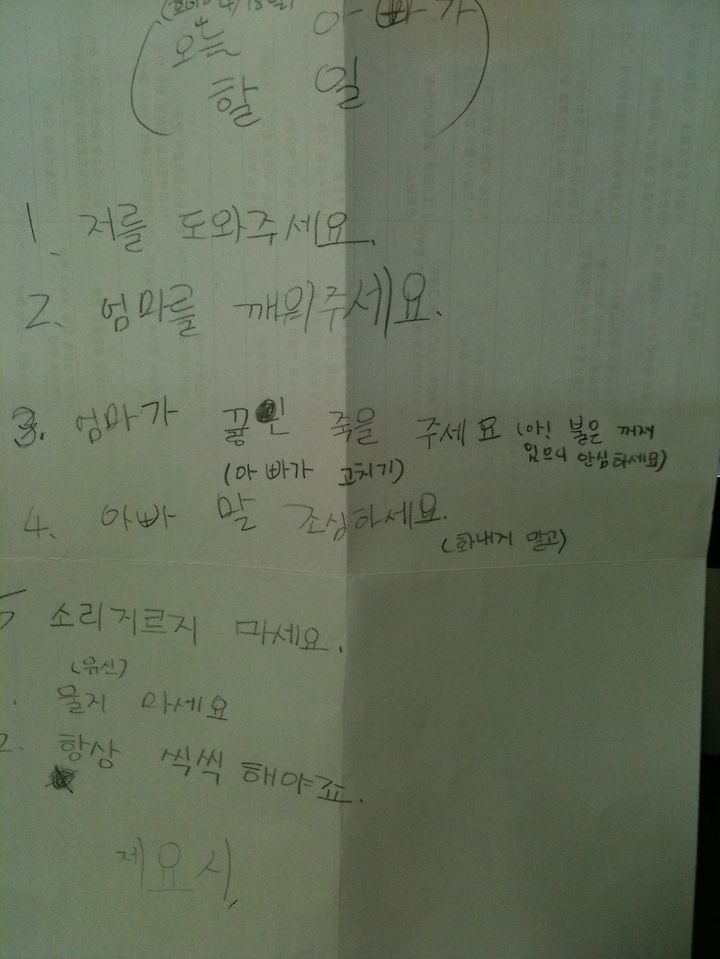 오늘 아빠가
할 일
1. 저를 도와주세요.
2. 엄마를 깨워주세요.
3. 엄마가 끓인 죽을 주세요 (아! 불은 꺼져
있으니 안심하세요)
(아빠가 고치기)
4. 아빠 말 조심하세요.
(화내지 말고)
5 소리지르지 마세요.
(유신)
1. 물지 마세요
2. 항상 씩씩해야죠.